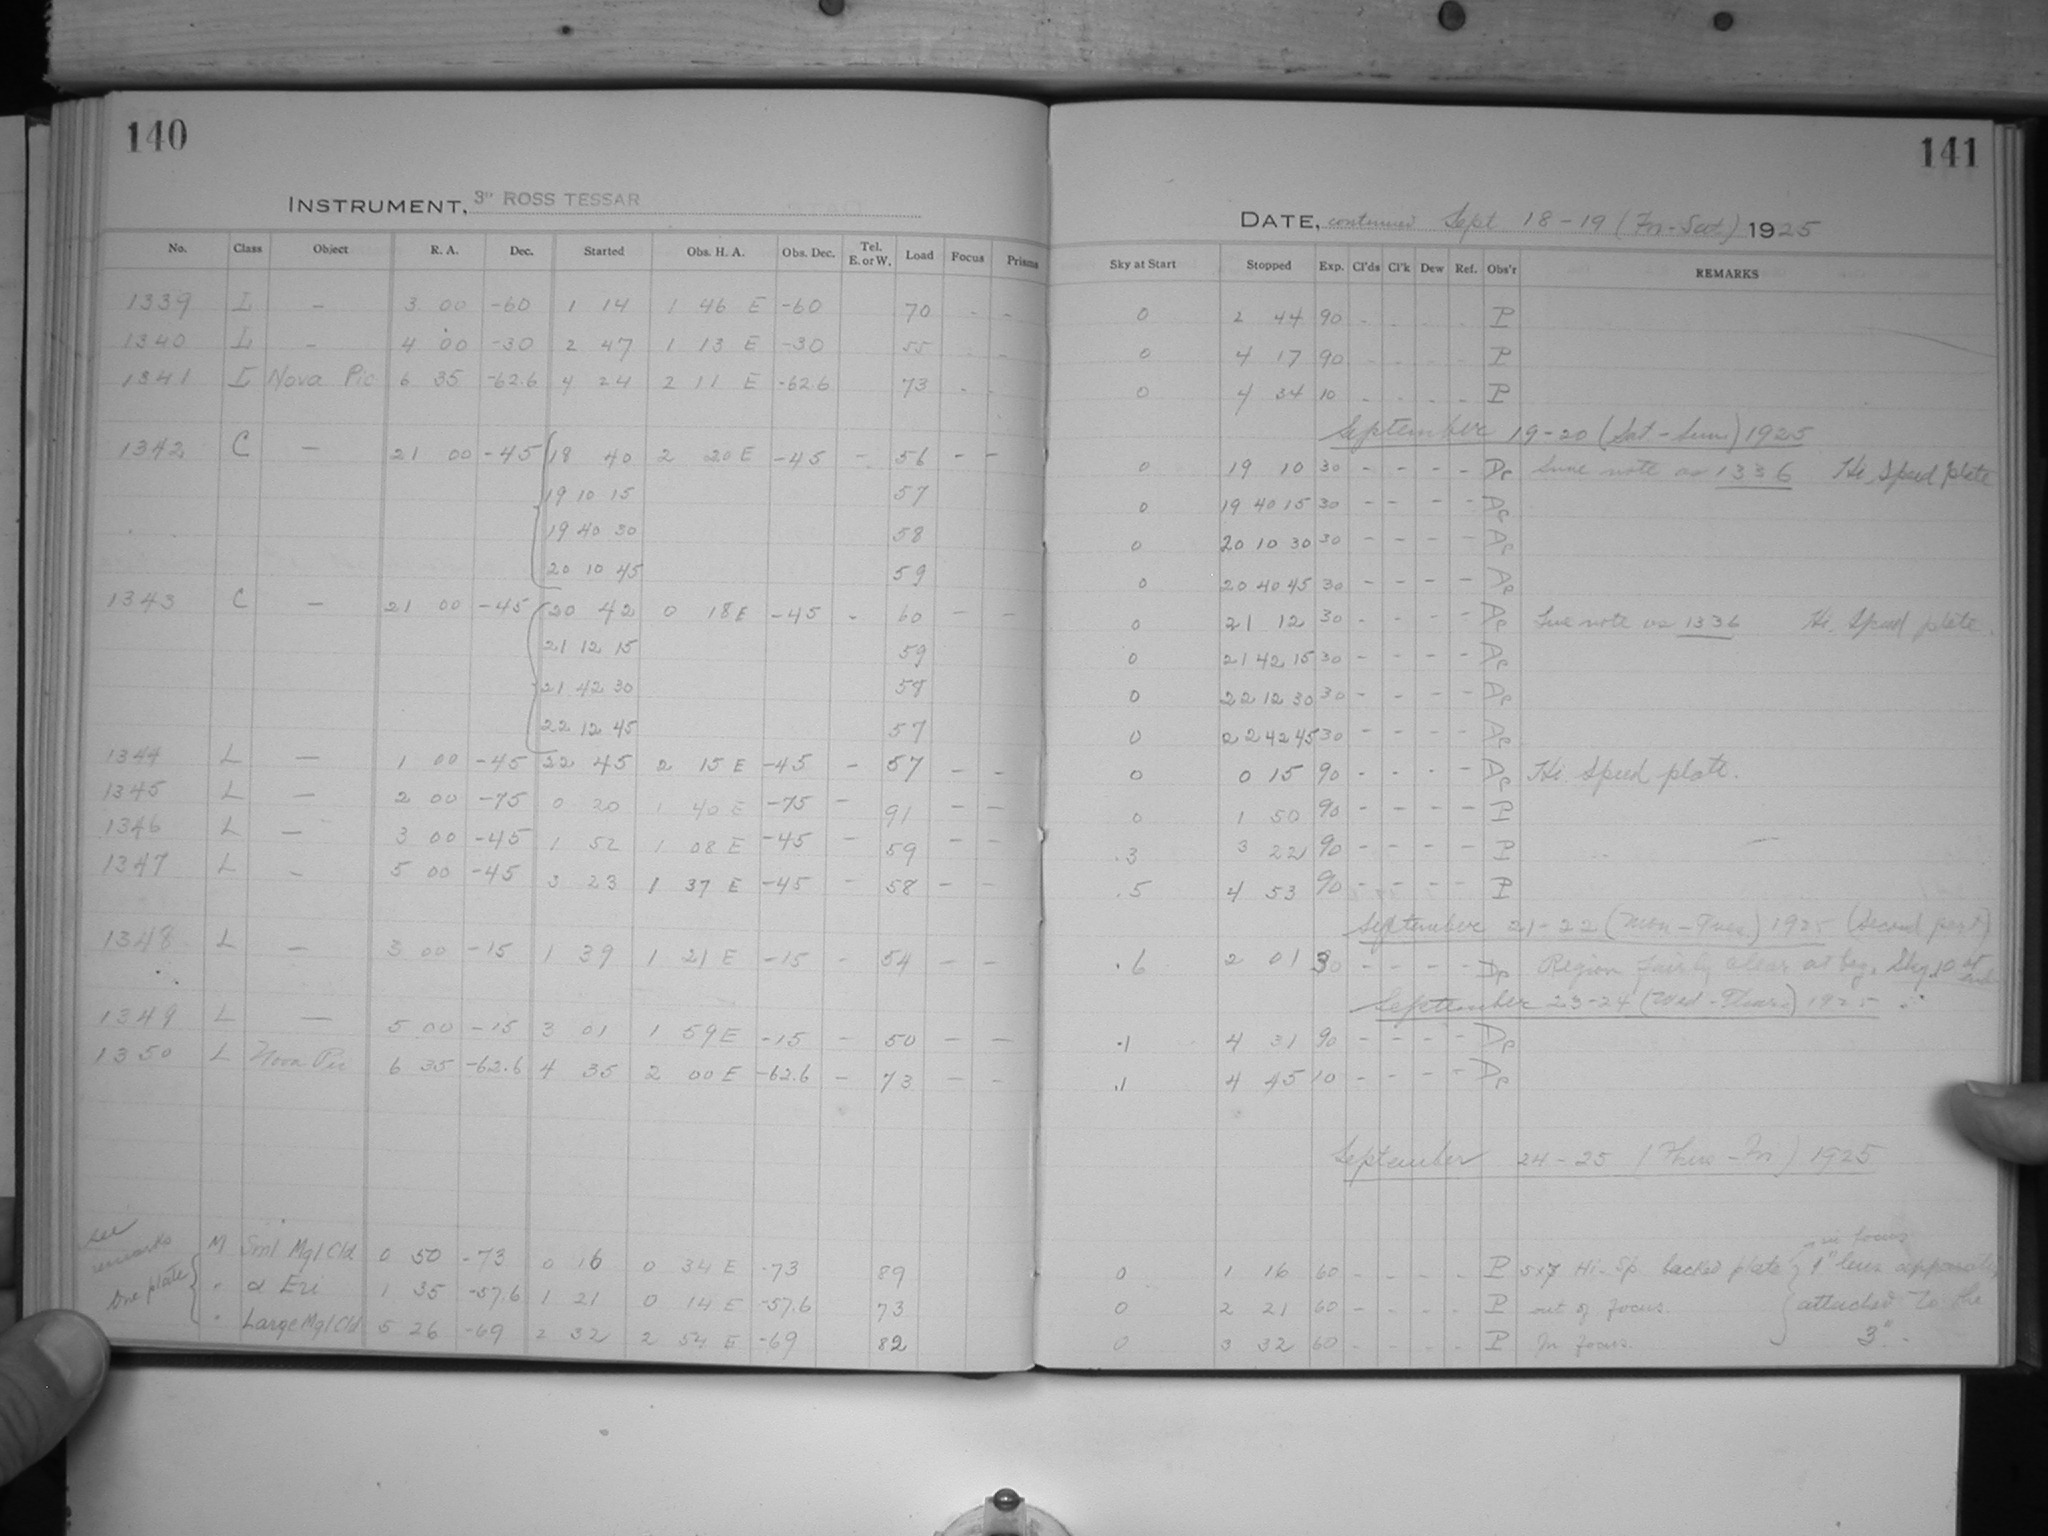 140
INSTRUMENT, 3" ROSS TESSAR
No. Class Object R. A. Dec. Started Obs. H. A. Obs. Dec. Tel. E. or W. Load Focus Prisms
1339 L – 3 00 -60 1 14 1 46 E -60 70 - -
1340 L – 4 00 -30 2 47 1 13 E -30 55 - -
1341 L Nova Pic 6 35 -62.6 4 24 2 11 E -62.6 73 - -
1342 C – 21 00 -45 18 40 2 20 E -45 – 56 – –
19 10 15 57
19 40 30 58
20 10 45 59
1343 C – 21 00 -45 20 42 0 18 E -45 - 60 – –
21 12 15 59
21 42 30 58
22 12 45 57
1344 L – 1 00 -45 22 45 2 15 E -45 – 57 – –
1345 L – 2 00 -75 0 20 1 40 E -75 – 91 – –
1346 L – 3 00 -45 1 52 1 08 E -45 – 59 – –
1347 L – 5 00 -45 3 23 1 37 E -45 – 58 – –
1348 L – 3 00 -15 1 39 1 21 E -15 - 54 – –
1349 L – 5 00 -15 3 01 1 59 E -15 – 50 – –
1350 L Nova Pic 6 35 -62.6 4 35 2 00 E -62.6 – 73 – –
see remarks
One plate
M Sml Mgl Cld 0 50 -73 0 16 0 34 E -73 89
" α Eri 1 35 -57.6 1 21 0 14 E -57.6 73
" Large Mgl Cld 5 26 -69 2 32 2 54 E -69 82
141
DATE, continued Sept 18-19 (Fri-Sat) 1925
Sky at Start Stopped Exp. Cl'ds Cl'k Dew Ref. Obs'r REMARKS
0 2 44 90 - - - - P
0 4 17 90 - - - - P
0 4 34 10 - - - - P
September 19-20 (Sat-Sun) 1925
0 19 10 30 - - - - Ae Same note as 1336 Hi. Speed plate
0 19 40 15 30 - - - - Ae
0 20 10 30 30 - - - - Ae
0 20 40 45 30 - - - - Ae
0 21 12 30 - - - - Ae Same note as 1336 Hi. Speed plate.
0 21 42 15 30 - - - - Ae
0 22 12 30 30 - - - - Ae
0 22 42 45 30 - - - - Ae
0 0 15 90 - - - - Ae Hi. Speed plate.
0 1 50 90 - - - - P
.3 3 22 90 - - - - P
.5 4 53 90 - - - - P
September 21-22 (Mon-Tues) 1925 (Second part)
.6 2 01 30 - - - - Ae Region fairly clear at beg. Sky 10 at end
September 23-24 (Wed-Thurs) 1925
.1 4 31 90 - - - - Ae
.1 4 45 10 - - - - Ae
September 24-25 (Thurs-Fri) 1925
0 1 16 60 - - - - P Hi-Sp backed plate in focus 1" lens apparatus
0 2 21 60 - - - - P out of focus. attached to the
0 3 32 60 - - - - P In focus. 3".